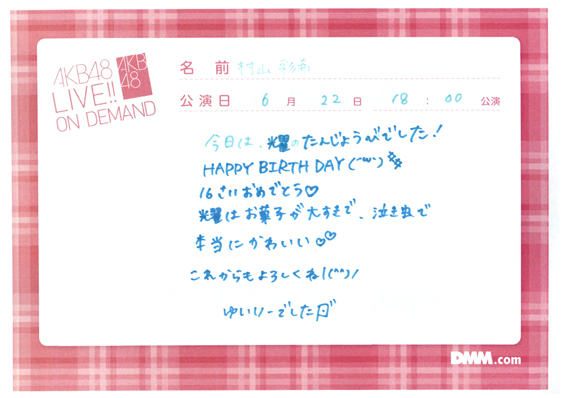 AKB48
LIVE!!
ON DEMAND
AKB
48
名 前 村山彩希
公演日 6 月 22 日 18 : 00 公演
今日は、耀のたんじょうびでした!
HAPPY BIRTH DAY (´ω`)
16さいおめでとう♡
耀はお菓子が大すきで、泣き虫で
本当にかわいい♡♡
これからもよろしくね!(^^)/
ゆいりーでした
DMM.com